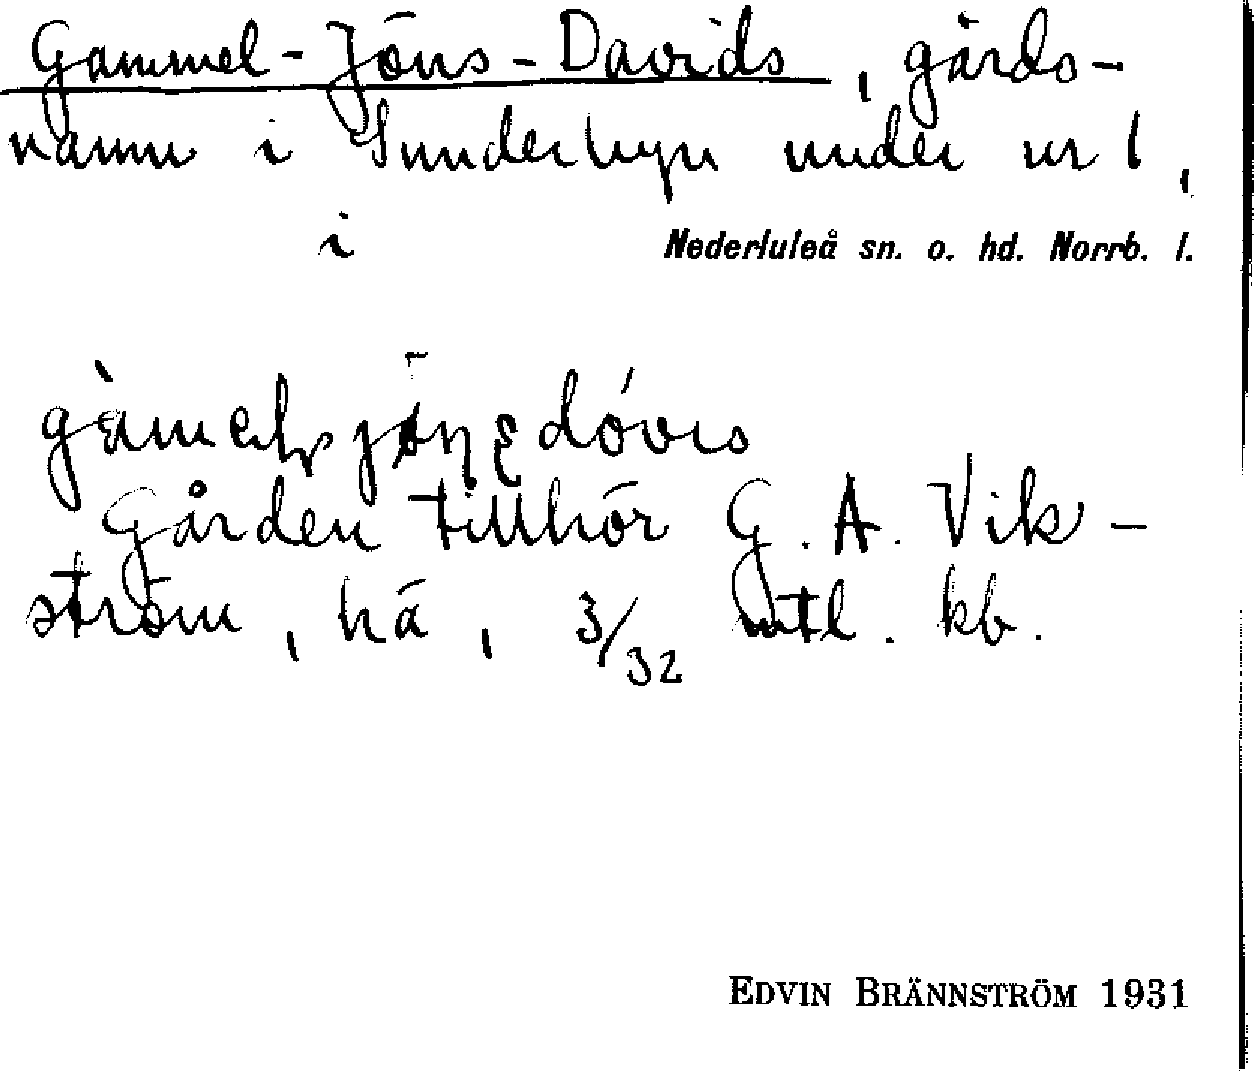 Gammel-Jöns-Davids, gårds-
namn i Sunderbyn under nr 1,
i Nederluleå sn. o. hd. Norrb. l.
Gården tillhör G. A. Vik-
ström, hä, 3/32 mtl. kb.
EDVIN BRÄNNSTRÖM 1931